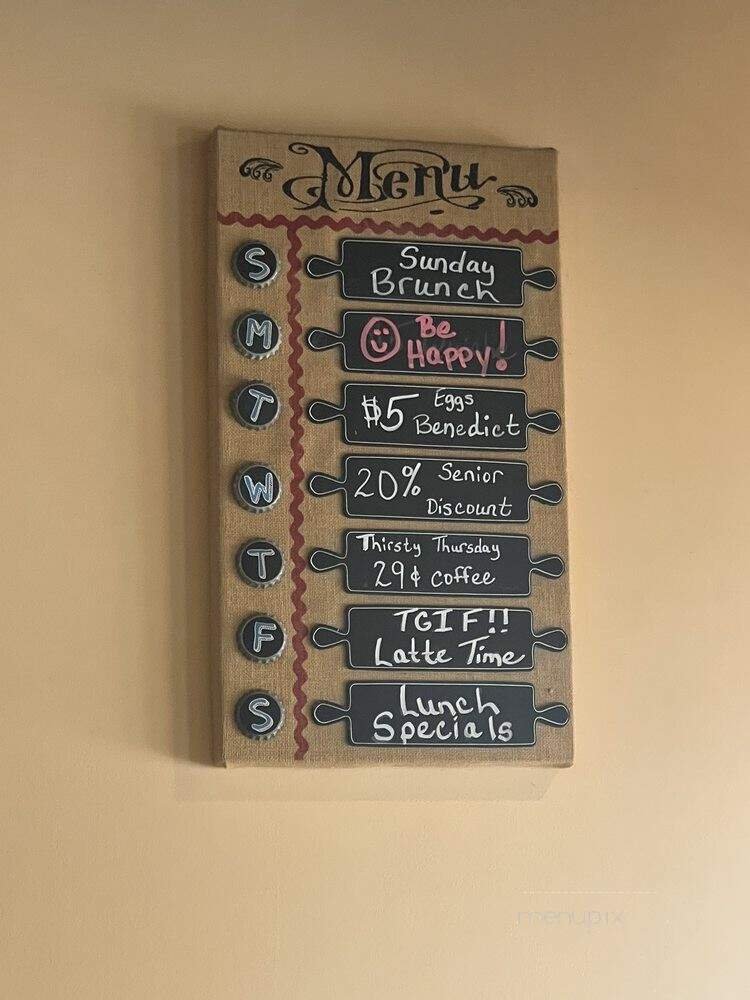 Menu
S
Sunday
Brunch
M
Be
Happy!
T
$5 Eggs
Benedict
W
20% Senior
Discount
T
Thirsty Thursday
29¢ coffee
F
TGIF!!
Latte Time
S
Lunch
Specials
menupix